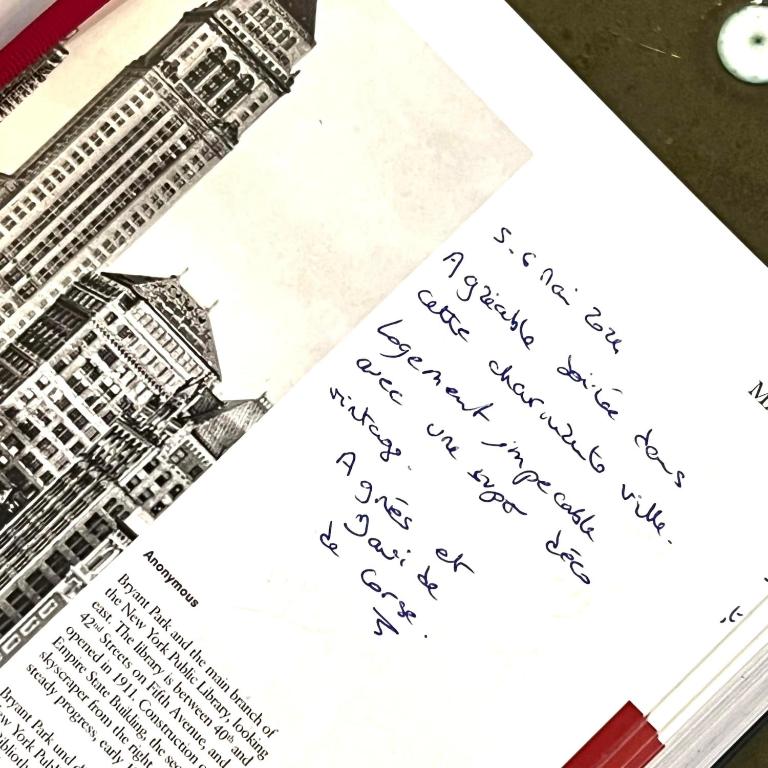 5-6 Mai 2024
Agréable soirée dans
cette charmante ville.
Logement impecable
avec une super déco
vintage.
Agnès et
de Corse.
Anonymous
Bryant Park and the main branch of
the New York Public Library, looking
east. The library is between 40th and
42nd Streets on Fifth Avenue, and
opened in 1911. Construction
Empire State Building, the
skyscraper from the right
steady progress, early
Bryant Park und